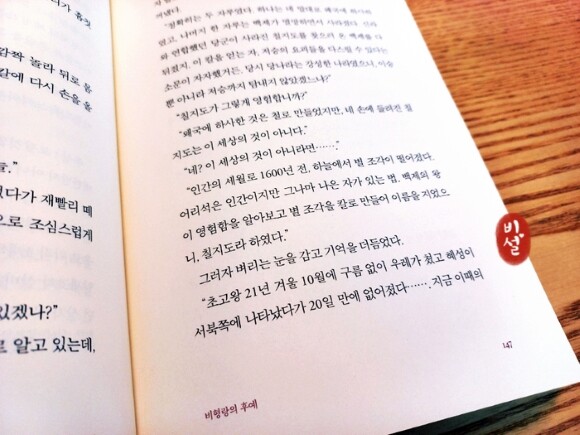 가 흠칫
깜짝 놀라 뒤로 몸
칼에 다시 손을 올
늘."
있다가 재빨리 떼
으로 조심스럽게
있겠나?"
로 알고 있는데,
꺼냈다.
"정확하는 두 자루였다. 하나는 네 말대로 왜국에 하사하
었고, 나머지 한 자루는 백제가 멸망하면서 사라졌다. 신라
와 연합했던 당군이 사라진 칠지도를 찾으러 온 백제를 다
뒤졌지. 이 칼을 얻는 자, 저승의 요괴들을 다스릴 수 있다는
소문이 자자했거든. 당시 당나라는 강성한 나라였으니, 이승
뿐 아니라 저승까지 탐내지 않았겠느냐?"
"칠지도가 그렇게 영험합니까?"
"왜국에 하사한 것은 철로 만들었지만, 네 손에 들려진 칠
지도는 이 세상의 것이 아니다."
"네? 이 세상의 것이 아니라면……."
"인간의 세월로 1600년 전, 하늘에서 별 조각이 떨어졌다.
어리석은 인간이지만 그나마 나은 자가 있는 법. 백제의 왕
이 영험함을 알아보고 별 조각을 칼로 만들어 이름을 지었으
니, 칠지도라 하였다."
그러자 벼리는 눈을 감고 기억을 더듬었다.
"초고왕 21년 겨울 10월에 구름 없이 우레가 쳤고 혜성이
서북쪽에 나타났다가 20일 만에 없어졌다……. 지금 이때의
비설
147
비형랑의 후예